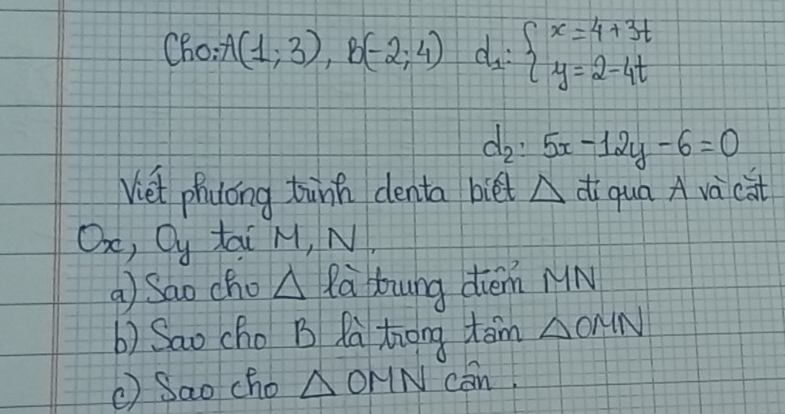 Cho: A(1; 3), B(-2; 4) d₁: { x = 4 + 3t
y = 2 - 4t
d₂: 5x - 12y - 6 = 0
Viết phương trình denta biết Δ đi qua A và cắt
Ox, Oy tại M, N.
a) Sao cho Δ là trung điểm MN
b) Sao cho B là trọng tâm ΔOMN
c) Sao cho ΔOMN cân.